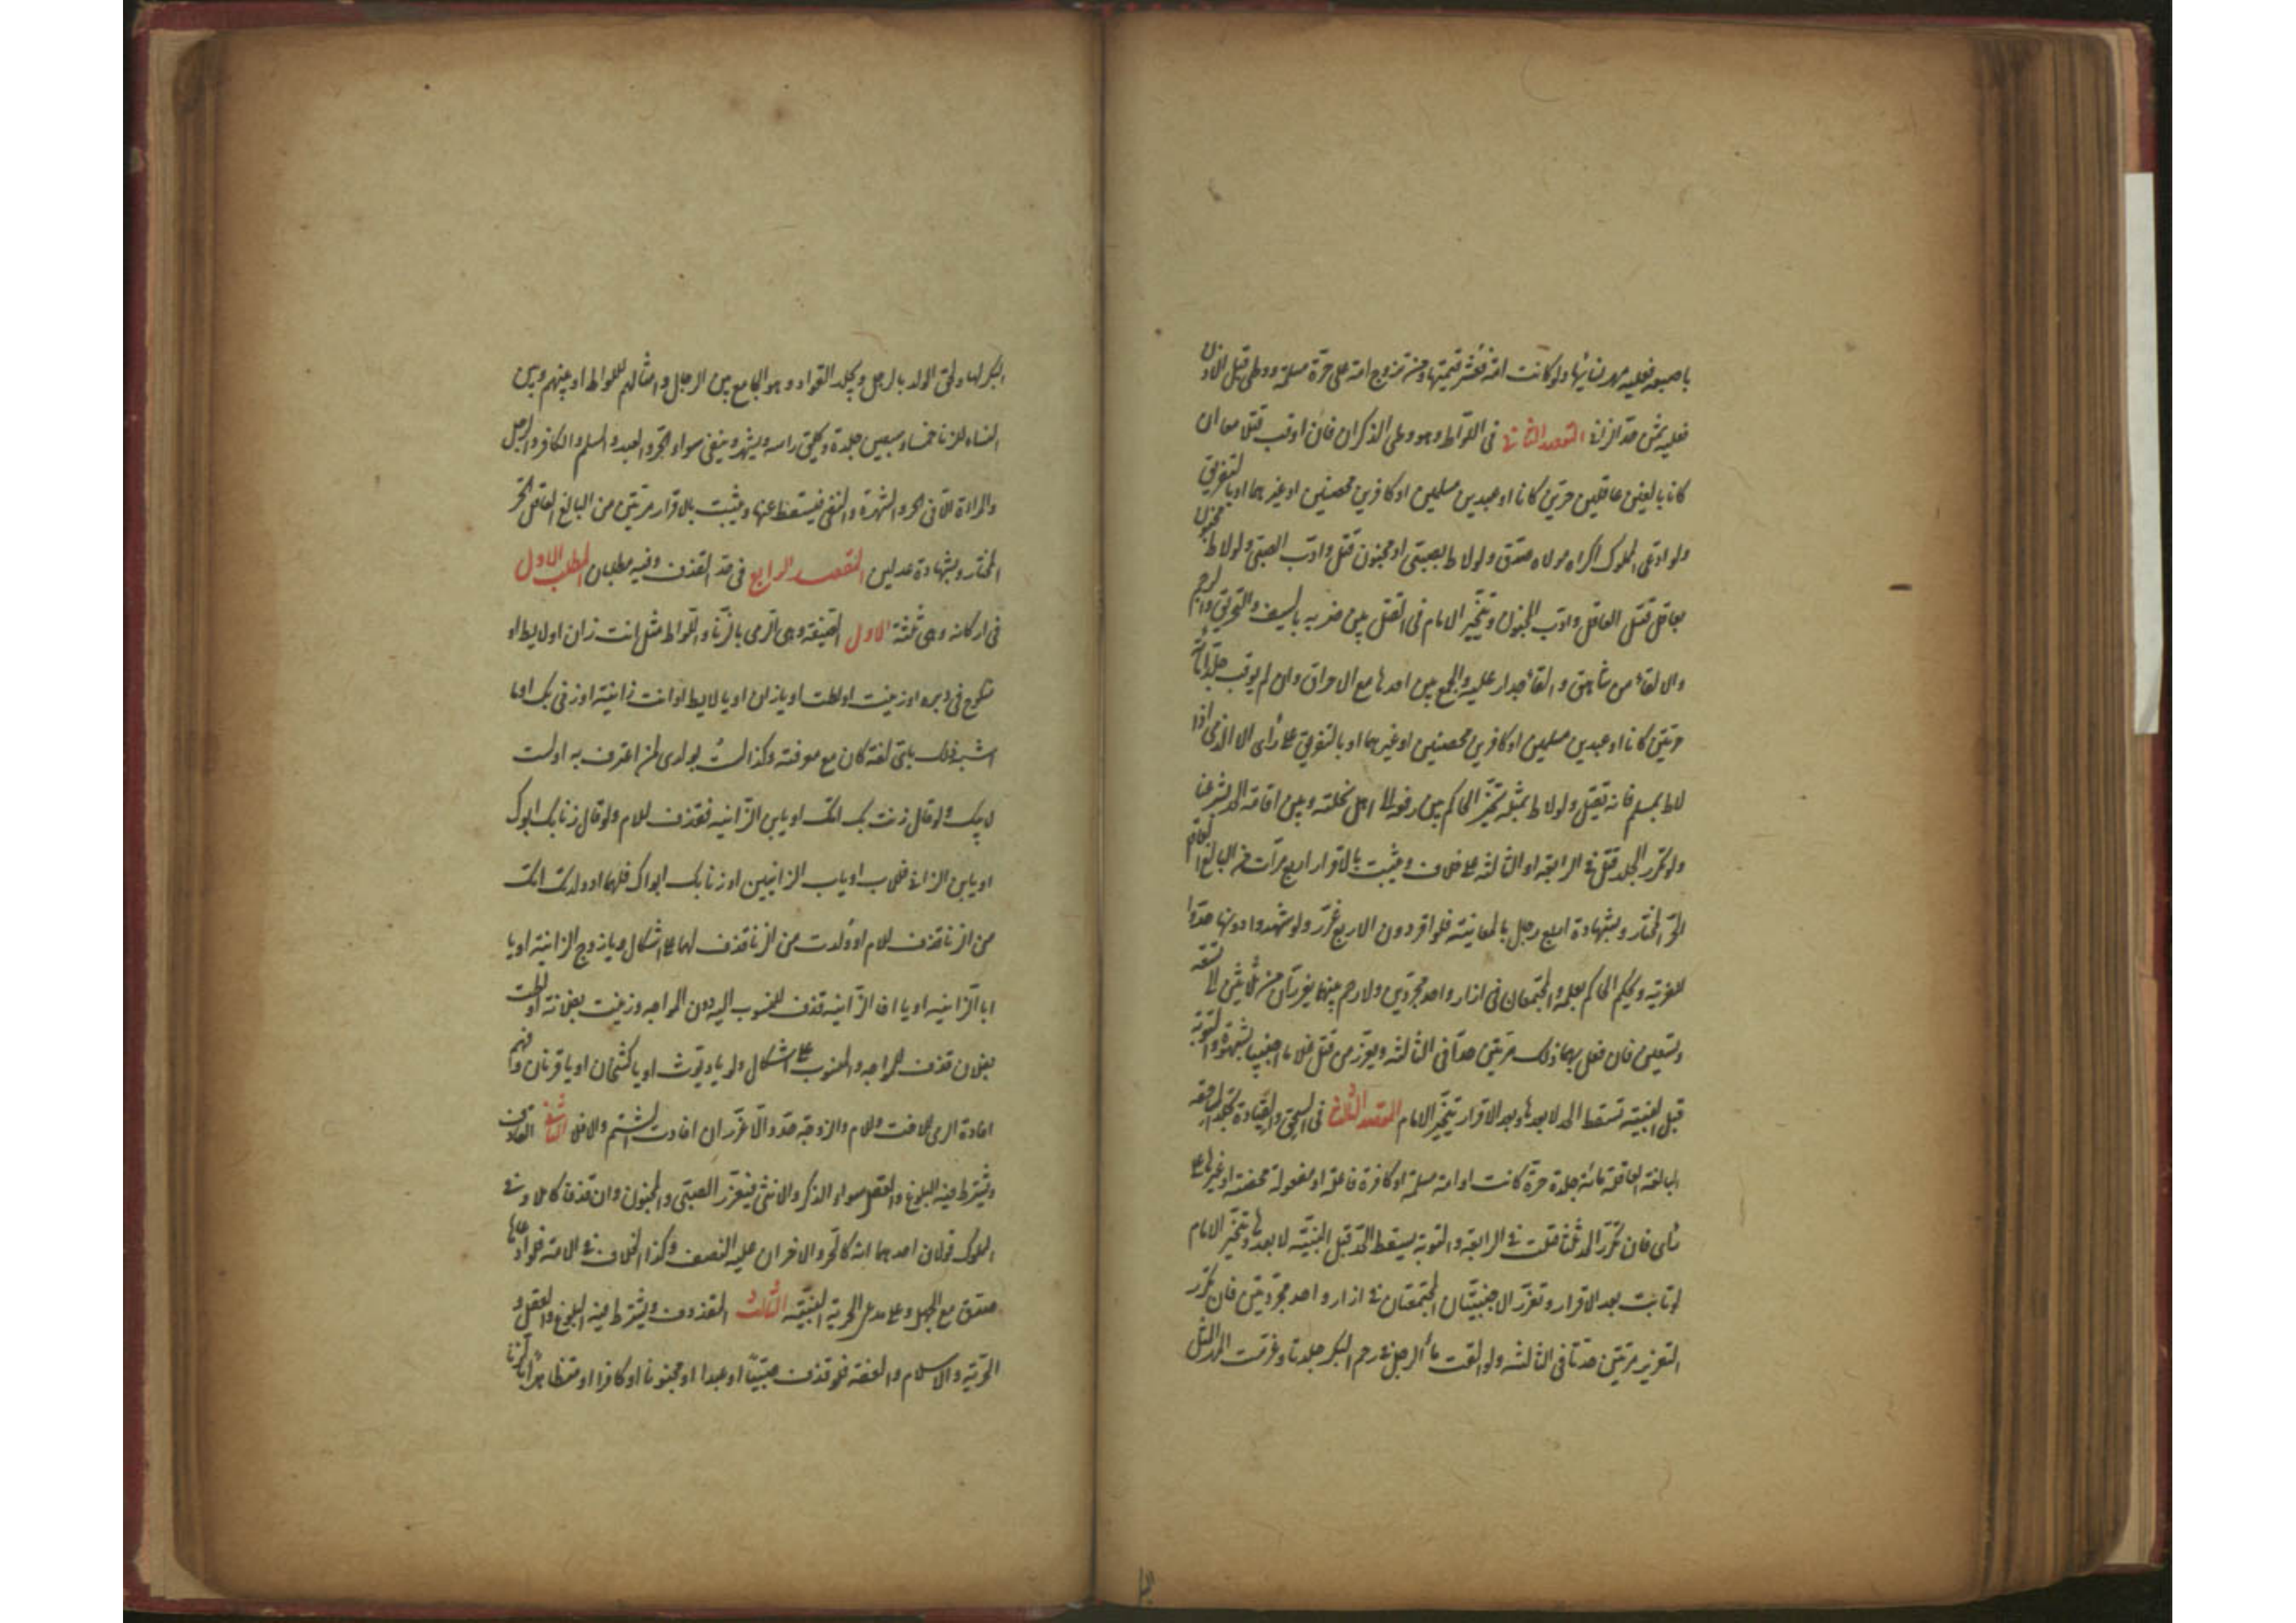 باصبعه فعليه مهر نسائها ولو كانت امة فعشر قيمتها ومن تزوج امة على حرة مسلمة ووطئ قبل الاذن
فعليه ثمن حد الزاني المقصد الثاني في اللواط وهو وطي الذكران فان اوقب قتل معا ان
كانا بالغين عاقلين حرين كانا او عبدين مسلمين او كافرين محصنين او غيرهما او بالتفريق
ولو ادعى المملوك اكراه مولاه صدق ولو لاط بصبي او مجنون قتل وادب الصبي ولو لاط مجنون
بعاقل قتل العاقل وادب المجنون ويتخير الامام في القتل بين ضربه بالسيف والتحريق والرجم
والالقاء من شاهق والقاء جدار عليه والجمع بين احدها مع الاحراق وان لم يوقب جلدا مائة
حرين كانا او عبدين مسلمين او كافرين محصنين او غيرهما او بالتفريق على رأى الا الذمى اذا
لاط بمسلم فانه يقتل ولو لاط بمثله تخير الحاكم بين رفعه الى اهل نحلته وبين اقامة الحد بشرعنا
ولو تكرر الجلد قتل في الرابعة او الثالثة على خلاف ويثبت بالاقرار اربع مرات من البالغ العاقل
الحر المختار وبشهادة اربع رجال بالمعاينة فلو اقر دون الاربع عزر ولو شهدوا دونها حدوا
للفرية ويحكم الحاكم بعلمه والمجتمعان في ازار واحد مجردين ولا رحم بينهما يعزران من ثلثين الى تسعة
وتسعين فان فعل بهما ذلك مرتين حدا في الثالثة ويعزر من قبل غلاما اجنبيا بشهوة والتوبة
قبل البينة تسقط الحد لا بعدها وبعد الاقرار يتخير الامام المقصد الثالث في السحق والقيادة تجلد المساحقة
البالغة العاقلة مائة جلدة حرة كانت او امة مسلمة او كافرة فاعلة او مفعولة محصنة او غيرها على
رأى فان تكرر الحد ثلثا قتلت في الرابعة والتوبة يسقط الحد قبل البينة لا بعدها ويتخير الامام
لو تابت بعد الاقرار وتعزر الاجنبيتان المجتمعتان في ازار واحد مجردتين فان تكرر
التعزير مرتين حدتا في الثالثة ولو القت ماء الرجل في رحم البكر جلدتا وغرمت المهر المثل
البكر لها ولحق الولد بالرجل ويجلد القواد وهو الجامع بين الرجال وامثالهم للواط او بينهم وبين
النساء للزنا خمسا وسبعين جلدة ويحلق راسه ويشهر وينفى سواء الحر والعبد والمسلم والكافر والرجل
والمراة الا في الجز والشهرة والنفى فيسقط عنها ويثبت بالاقرار مرتين من البالغ العاقل الحر
المختار وبشهادة عدلين المقصد الرابع في حد القذف وفيه مطلبان المطلب الاول
في اركانه وهي ثلثة الاول الصيغة وهي الرمى بالزنا واللواط مثل انت زان او لايط او
منكوح في دبره او زنيت او لطت او يا زان او يا لايط او انت زانية او زنى بك او ما
اشبه ذلك باي لغة كان مع معرفته وكذا لست بولدى لمن اعترف به او لست
لابيك ولو قال زنت بك امك او يابن الزانية فقذف للام ولو قال زنا بك ابوك
او يابن الزاني فللاب او يابن الزانيين او زنا بك ابواك فلهما او ولدتك امك
من الزنا قذف للام او ولدت من الزنا قذف لهما على اشكال ويا زوج الزانية او يا
ابا الزانية او يا اخا الزانية قذف للمنسوب اليه دون المواجه وزنيت بفلانة او لطت
بفلان قذف للمواجه والمنسوب على اشكال ولو يا ديوث او يا كشخان او يا قرنان وفهم
افادة الرمى للاخت وللام والزوجة حد والا عزر ان افادت الشتم والا فلا الثاني القاذف
ويشترط فيه البلوغ والعقل سواء الذكر والانثى فيعزر الصبي والمجنون وان قذفا كاملا وفي
المملوك قولان احدهما انه كالحر والاخر ان عليه النصف وكذا الخلاف في الامة فلو ادعاها
صدق مع الجهل وعلى مدعي الحرية البينة الثالث المقذوف ويشترط فيه البلوغ والعقل و
الحرية والاسلام والعفة فلو قذف صبيا او عبدا او مجنونا او كافرا او متظاهرا بالزنا